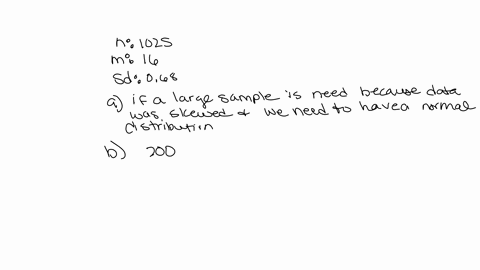 n: 1025
m: 16
sd: 0.68
a) if a large sample is need because data
was skewed & we need to have a normal
distribution
b) 200